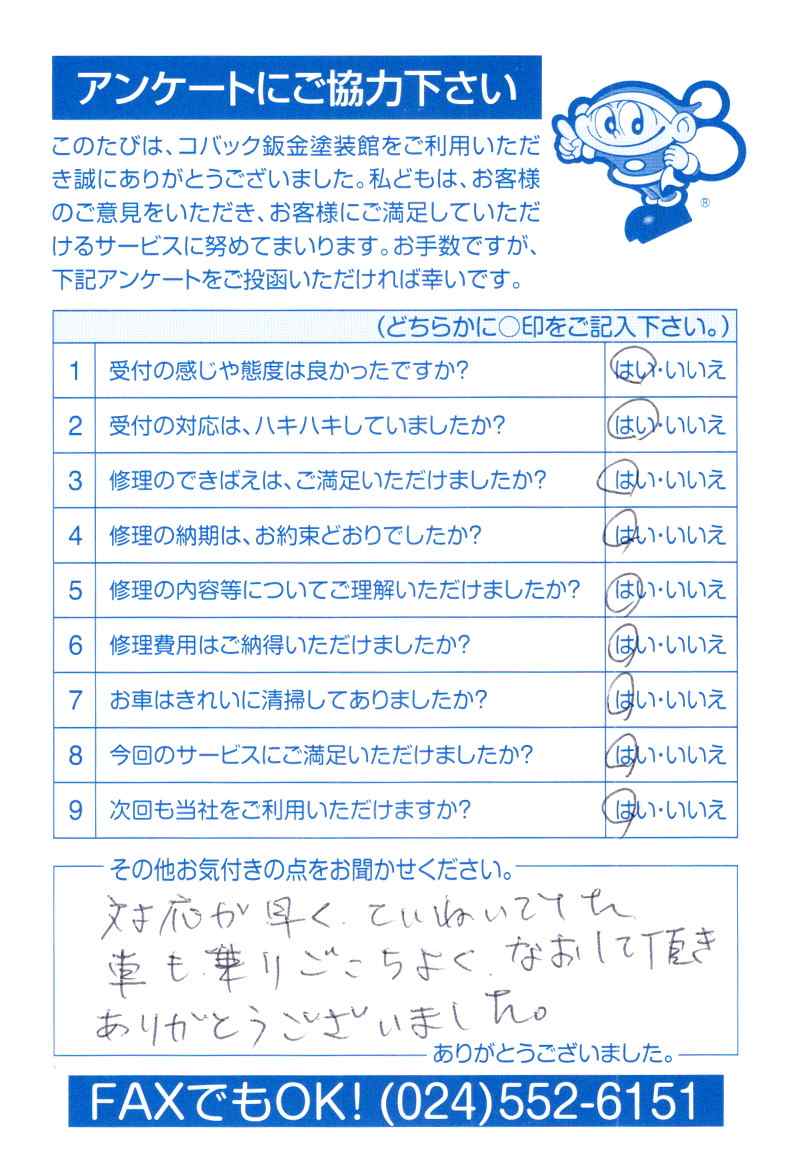 アンケートにご協力下さい
このたびは、コバック鈑金塗装館をご利用いただ
き誠にありがとうございました。私どもは、お客様
のご意見をいただき、お客様にご満足していただ
けるサービスに努めてまいります。お手数ですが、
下記アンケートをご投函いただければ幸いです。
®
(どちらかに○印をご記入下さい。)
1 受付の感じや態度は良かったですか? はい・いいえ
2 受付の対応は、ハキハキしていましたか? はい・いいえ
3 修理のできばえは、ご満足いただけましたか? はい・いいえ
4 修理の納期は、お約束どおりでしたか? はい・いいえ
5 修理の内容等についてご理解いただけましたか? はい・いいえ
6 修理費用はご納得いただけましたか? はい・いいえ
7 お車はきれいに清掃してありましたか? はい・いいえ
8 今回のサービスにご満足いただけましたか? はい・いいえ
9 次回も当社をご利用いただけますか? はい・いいえ
その他お気付きの点をお聞かせください。
対応が早く、ていねいでした
車も乗りごこちよく、なおして頂き
ありがとうございました。
ありがとうございました。
FAXでもOK! (024)552-6151